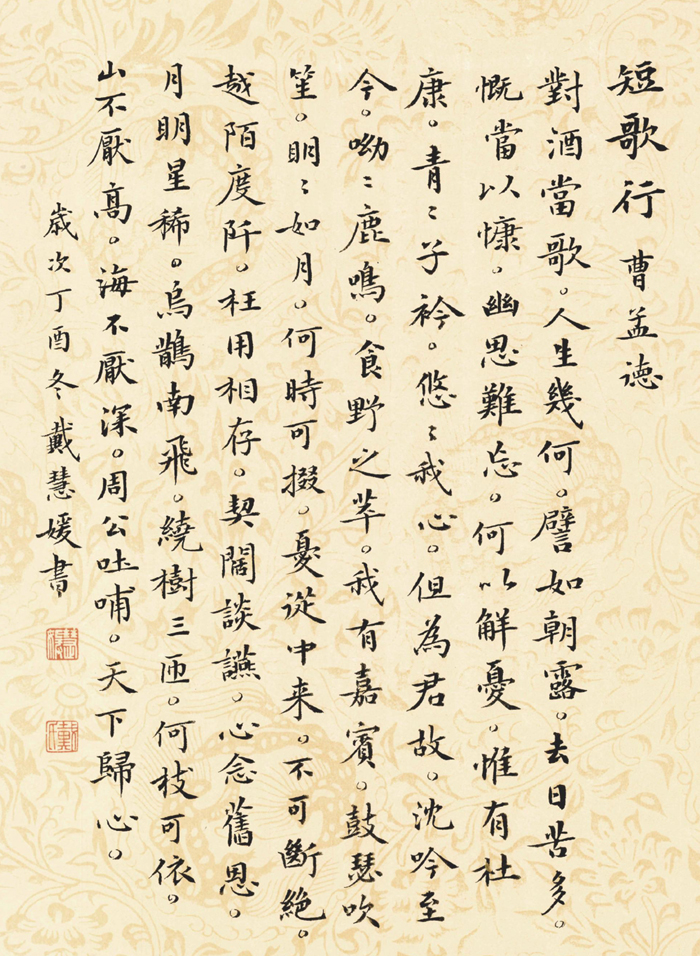 短歌行 曹孟德
對酒當歌。人生幾何。譬如朝露。去日苦多。
慨當以慷。幽思難忘。何以解憂。惟有杜
康。青〻子衿。悠〻我心。但為君故。沈吟至
今。呦〻鹿鳴。食野之苹。我有嘉賓。鼓瑟吹
笙。明〻如月。何時可掇。憂從中来。不可斷絕。
越陌度阡。枉用相存。契闊談讌。心念舊恩。
月明星稀。烏鵲南飛。繞樹三匝。何枝可依。
山不厭高。海不厭深。周公吐哺。天下歸心。
歲次丁酉冬戴慧媛書